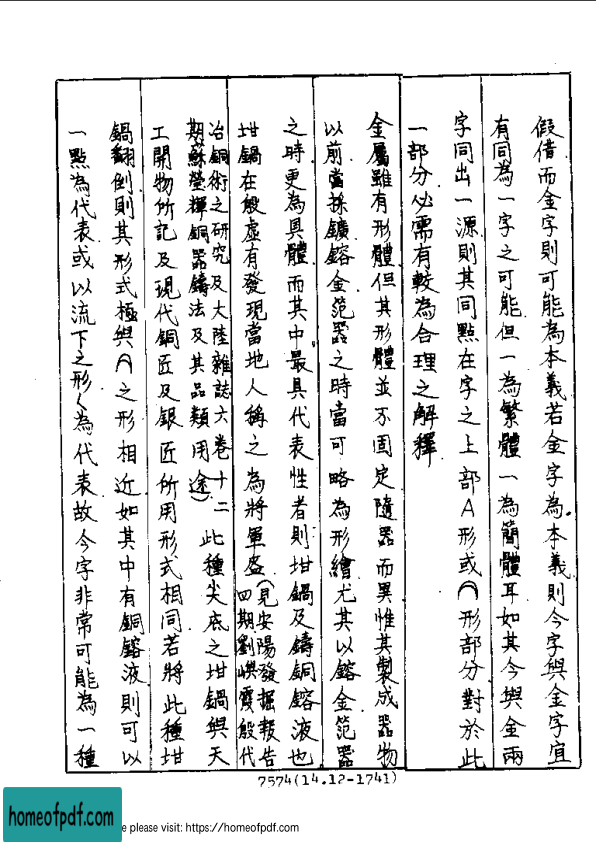 假借而金字則可能為本義若金字為本義則今字與金字宜
有同為一字之可能但一為繁體一為簡體耳如其今與金兩
字同出一源則其同點在字之上部A形或形部分對於此
一部分必需有較為合理之解釋
金屬雖有形體但其形體並不固定隨器而異惟其製成器物
以前當採鑛鎔金范器之時當可略為形繪尤其以鎔金范器
之時更為具體而其中最具代表性者則坩鍋及鑄銅鎔液也
坩鍋在殷虛有發現當地人稱之為將軍盔
(見安陽發掘報告
四期劉嶼霞殷代
冶銅術之研究及大陸雜誌六卷十二
期蘇瑩輝銅器鑄法及其品類用途)
此種尖底之坩鍋與天
工開物所記及現代銅匠及銀匠所用形式相同若將此種坩
鍋翻倒則其形式極與之形相近如其中有銅鎔液則可以
一點為代表或以流下之形為代表故今字非常可能為一種
7574(14.12-1741)
homeofpdf.com
e please visit: https://homeofpdf.com